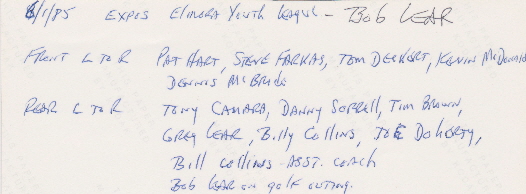 6/1/85 EXPOS ELMORA YOUTH LEAGUE - BOB LEAR
FRONT L TO R PAT HART, STEVE FARKAS, TOM DECKERT, KEVIN McDONALD
DENNIS McBRIDE
REAR L TO R TONY CAMARA, DANNY SORRELL, TIM BROWN,
GREG LEAR, BILLY COLLINS, JOE DOHERTY,
BILL COLLINS - ASST. COACH
BOB LEAR ON GOLF OUTING.